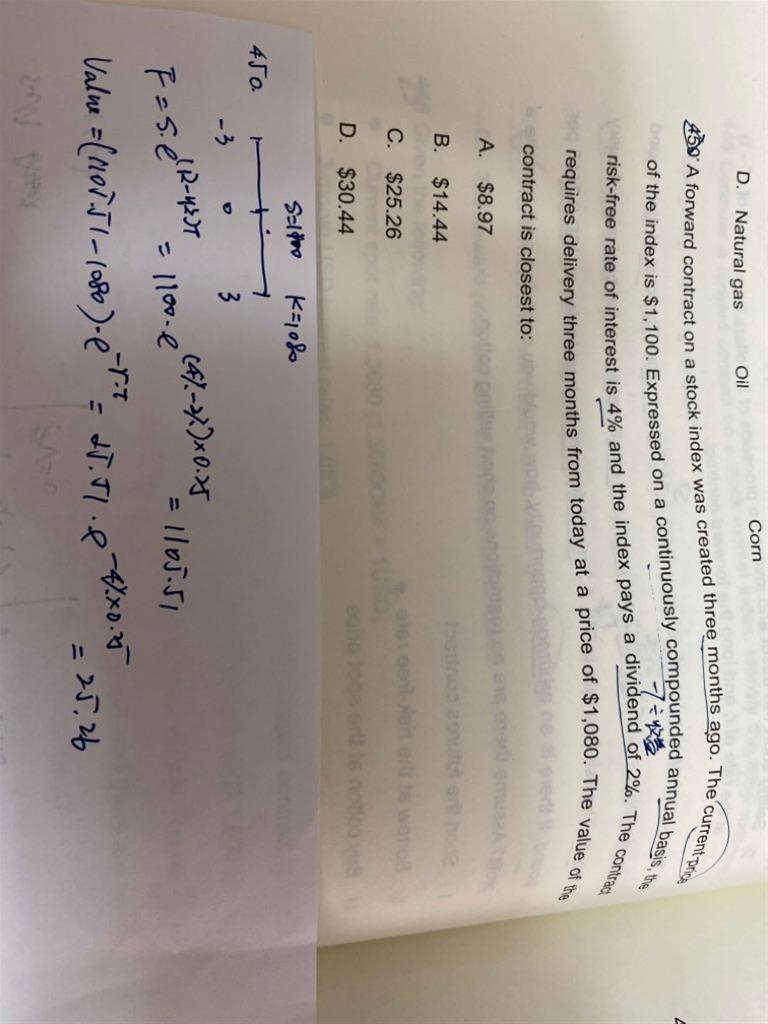 Corn
D. Natural gas Oil
450. A forward contract on a stock index was created three months ago. The current price
of the index is $1,100. Expressed on a continuously compounded annual basis, the
risk-free rate of interest is 4% and the index pays a dividend of 2%. The contract
requires delivery three months from today at a price of $1,080. The value of the
contract is closest to:
A. $8.97
B. $14.44
C. $25.26
D. $30.44
K=1080
450.
-3 0 3
= 1100·e^(4%-2%)×0.25 = 1105.51
Value = (1105.51-1080)·e^-r·T = 25.51·e^-4%×0.25 = 25.26